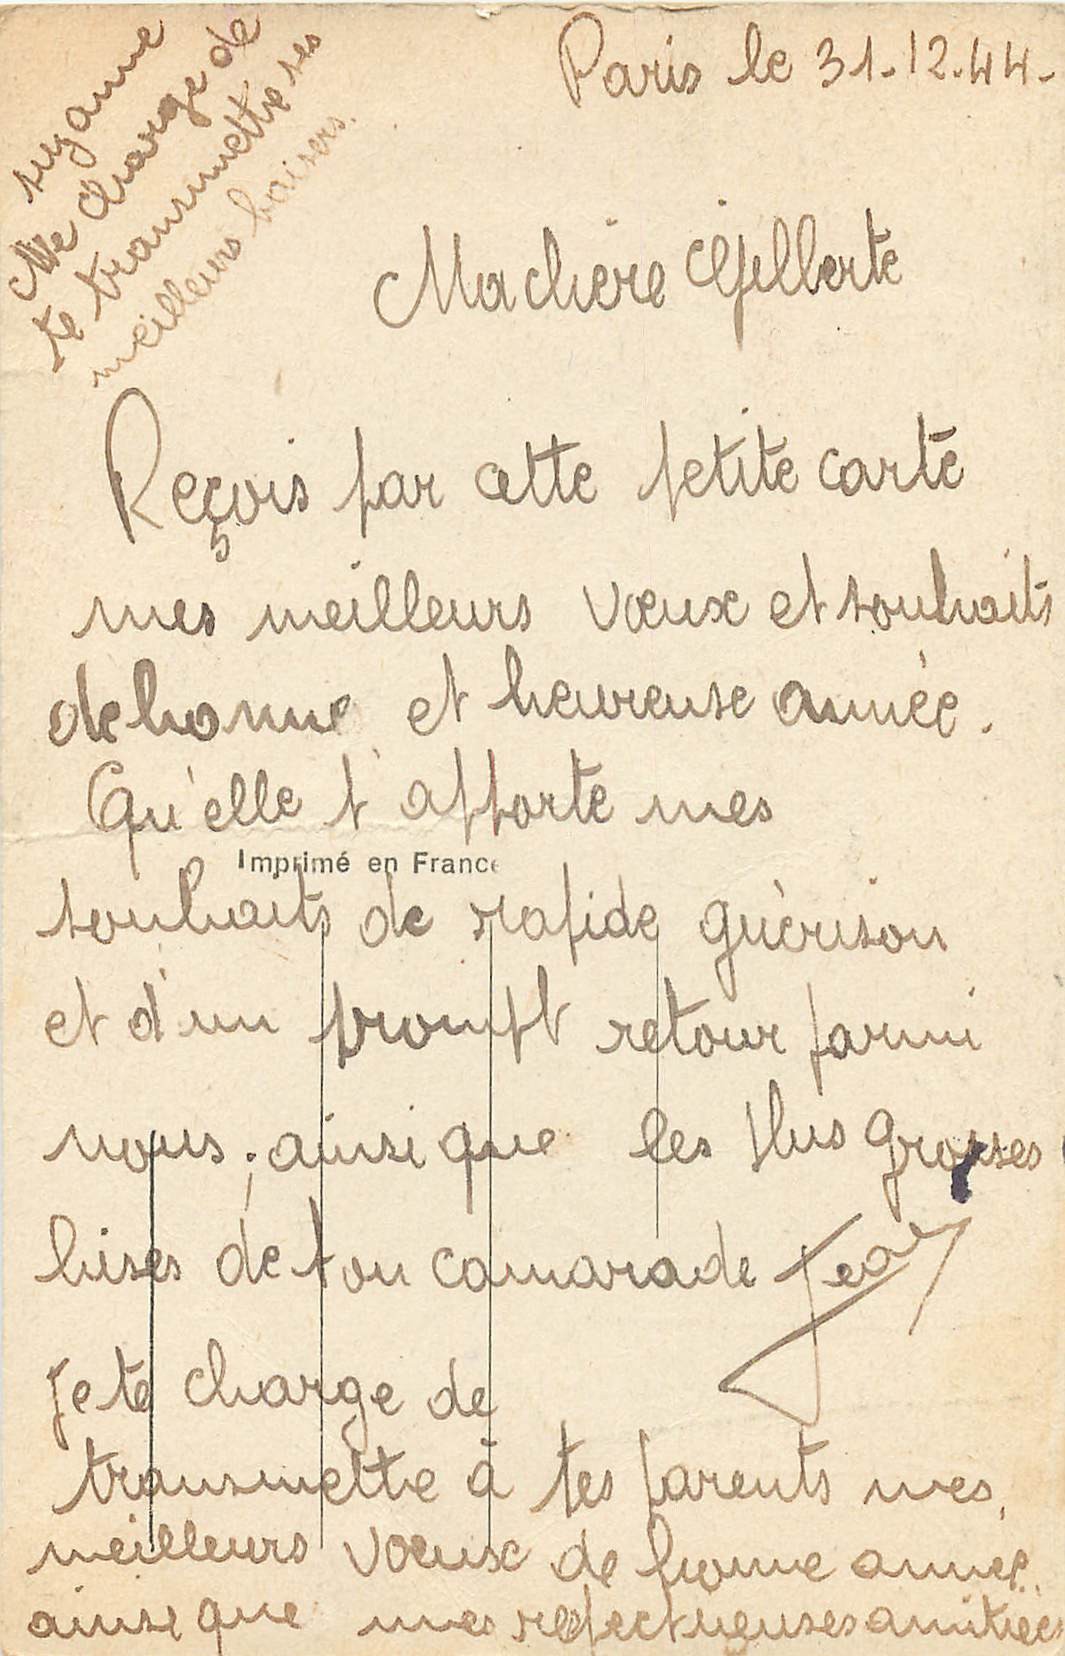 Paris le 31.12.44.
Suzanne
Me charge de
te transmettre ses
meilleurs baisers.
Ma chère Gilberte
Reçois par cette petite carte
mes meilleurs vœux et souhaits
de bonne et heureuse année.
Qu'elle t'apporte mes
Imprimé en France
souhaits de rapide guérison
et d'un prompt retour parmi
nous ; ainsi que les plus grosses
bises de ton camarade Jean
Je te charge de
transmettre à tes parents mes
meilleurs vœux de bonne année
ainsi que mes respectueuses amitiés